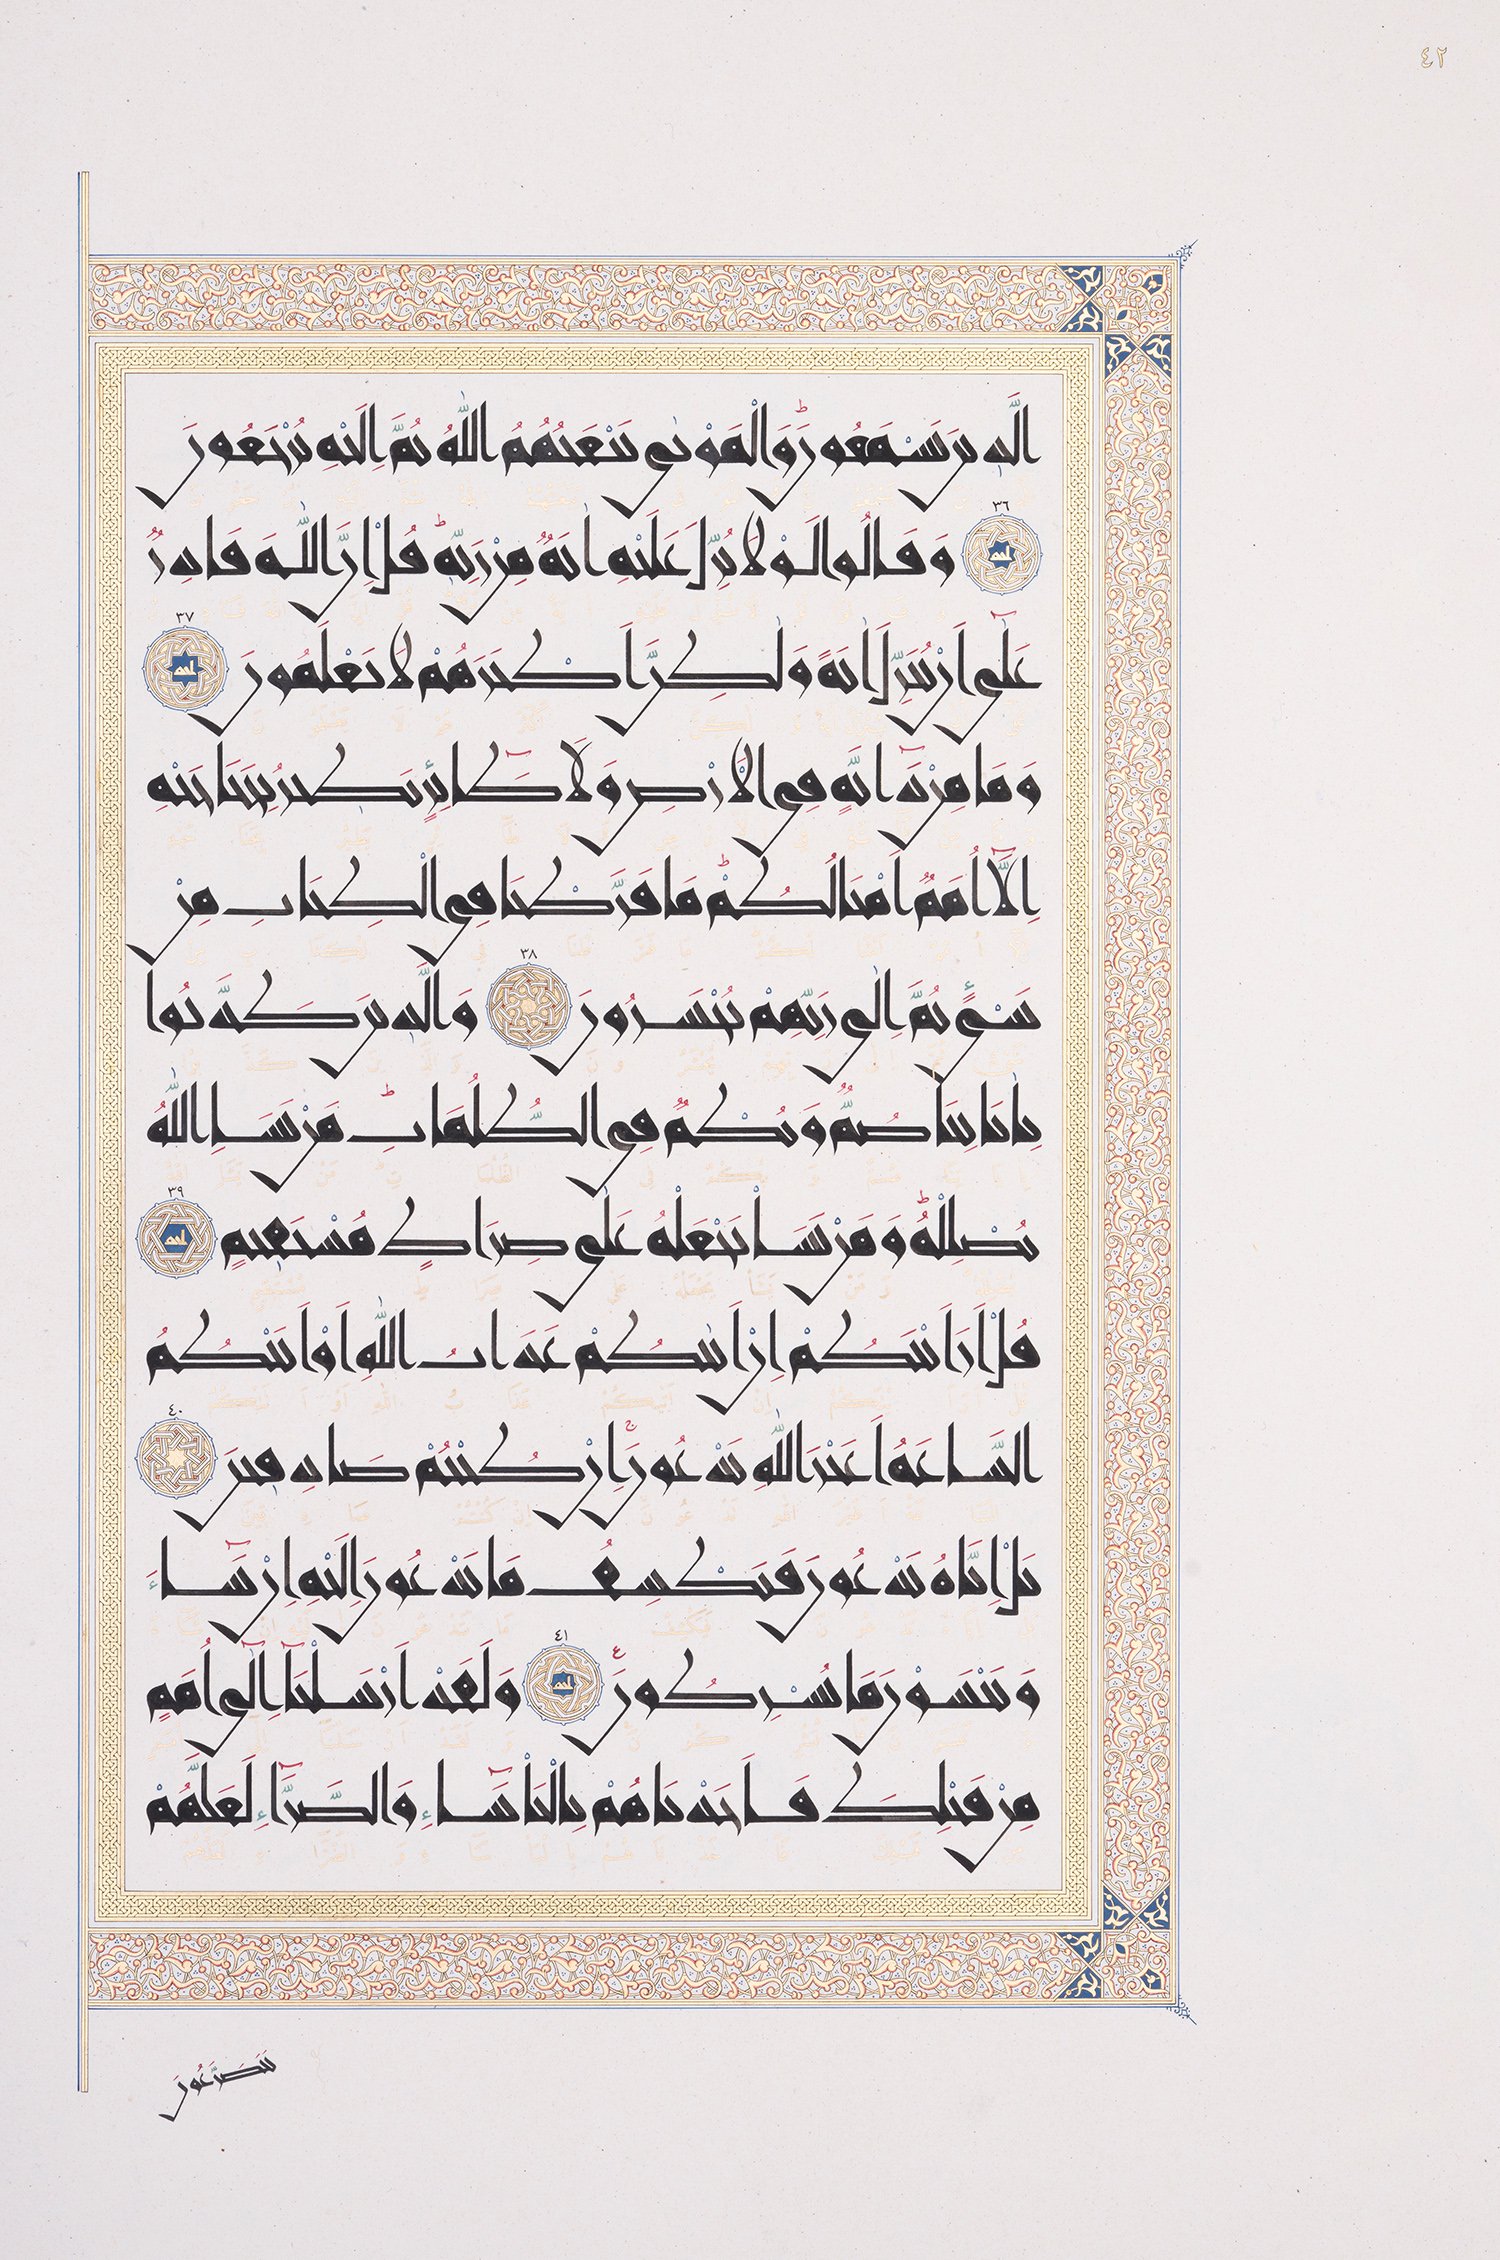 ٤٢
الَّذِينَ يَسْمَعُونَ ۘ وَالْمَوْتٰى يَبْعَثُهُمُ اللّٰهُ ثُمَّ اِلَيْهِ يُرْجَعُونَ
٣٦ وَقَالُوا لَوْلَا نُزِّلَ عَلَيْهِ اٰيَةٌ مِنْ رَبِّهٖ ۚ قُلْ اِنَّ اللّٰهَ قَادِرٌ
عَلٰٓى اَنْ يُنَزِّلَ اٰيَةً وَلٰكِنَّ اَكْثَرَهُمْ لَا يَعْلَمُونَ ٣٧
وَمَا مِنْ دَٓابَّةٍ فِي الْاَرْضِ وَلَا طَٓائِرٍ يَطٖيرُ بِجَنَاحَيْهِ
اِلَّٓا اُمَمٌ اَمْثَالُكُمْ ۚ مَا فَرَّطْنَا فِي الْكِتَابِ مِنْ
شَيْءٍ ثُمَّ اِلٰى رَبِّهِمْ يُحْشَرُونَ ٣٨ وَالَّذٖينَ كَذَّبُوا
بِاٰيَاتِنَا صُمٌّ وَبُكْمٌ فِي الظُّلُمَاتِ ۚ مَنْ يَشَاِ اللّٰهُ
يُضْلِلْهُ ۚ وَمَنْ يَشَاْ يَجْعَلْهُ عَلٰى صِرَاطٍ مُسْتَقٖيمٍ ٣٩
قُلْ اَرَاَيْتَكُمْ اِنْ اَتٰيكُمْ عَذَابُ اللّٰهِ اَوْ اَتَتْكُمُ
السَّاعَةُ اَغَيْرَ اللّٰهِ تَدْعُونَ ۚ اِنْ كُنْتُمْ صَادِقٖينَ ٤٠
بَلْ اِيَّاهُ تَدْعُونَ فَيَكْشِفُ مَا تَدْعُونَ اِلَيْهِ اِنْ شَٓاءَ
وَتَنْسَوْنَ مَا تُشْرِكُونَ ٤١ وَلَقَدْ اَرْسَلْنَٓا اِلٰٓى اُمَمٍ
مِنْ قَبْلِكَ فَاَخَذْنَاهُمْ بِالْبَاْسَٓاءِ وَالضَّرَّٓاءِ لَعَلَّهُمْ
يَتَضَرَّعُونَ